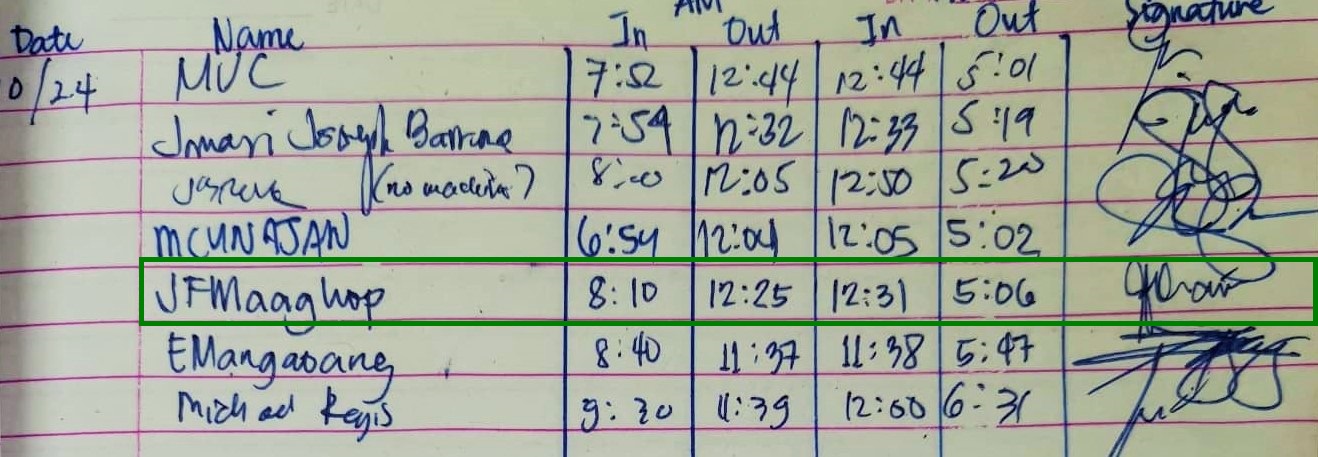 AM
Date Name In Out In Out Signature
0/24 MUC 7:52 12:44 12:44 5:01
Jmari Joseph 7:59 12:32 12:33 5:19
8:00 12:05 12:50 5:20
MCUNAJAN 6:54 12:04 12:05 5:02
JFMaaghop 8:10 12:25 12:31 5:06
EMangaoang 8:40 11:37 11:38 5:47
Michael Regis 9:30 11:39 12:00 6:31